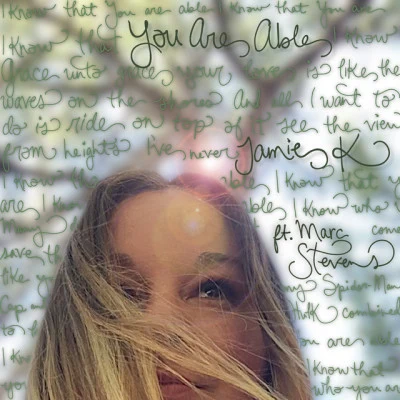 I know that You are able I know that You are
I know that You Are Able I know
Grace unto grace your love is like the
waves on the shores And all I want to
do is ride on top of it see the view
from heights I've never Jamie K
I know able I know that
are I able I know who
ft. Marc
Stevens
save the
like y my Spider Man
Cap a Hulk combined
you are able
I know I know that
you who you are